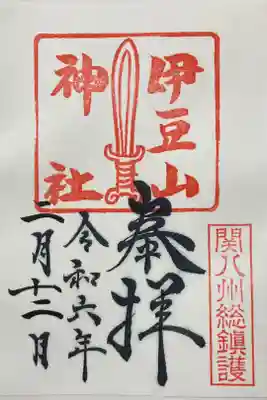 伊豆山
神社
関八州総鎮護
奉拝
令和六年
二月十二日